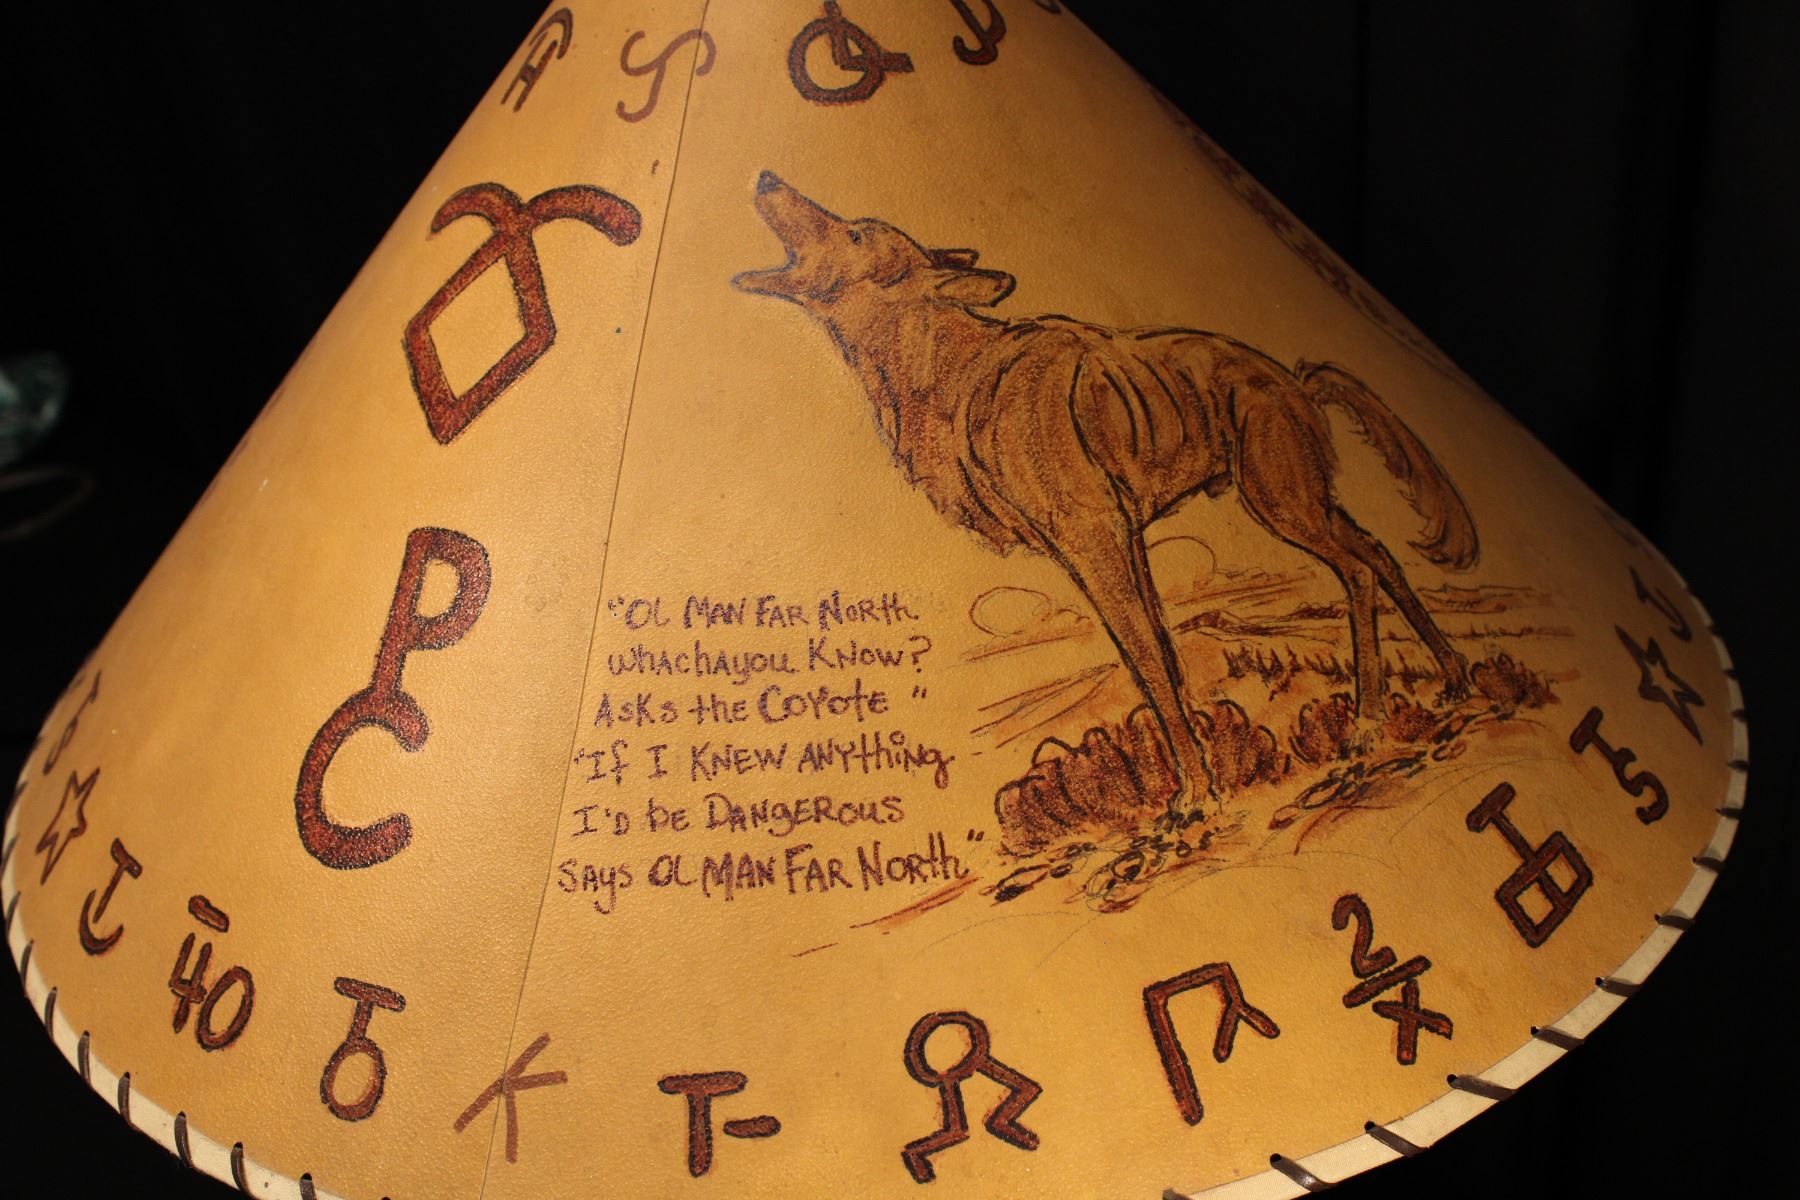 "Ol Man Far North
whachayou Know?
Asks the Coyote "
"If I Knew Anything
I'd be Dangerous
Says Ol Man Far North"
P
C
40
K
T-
2/x